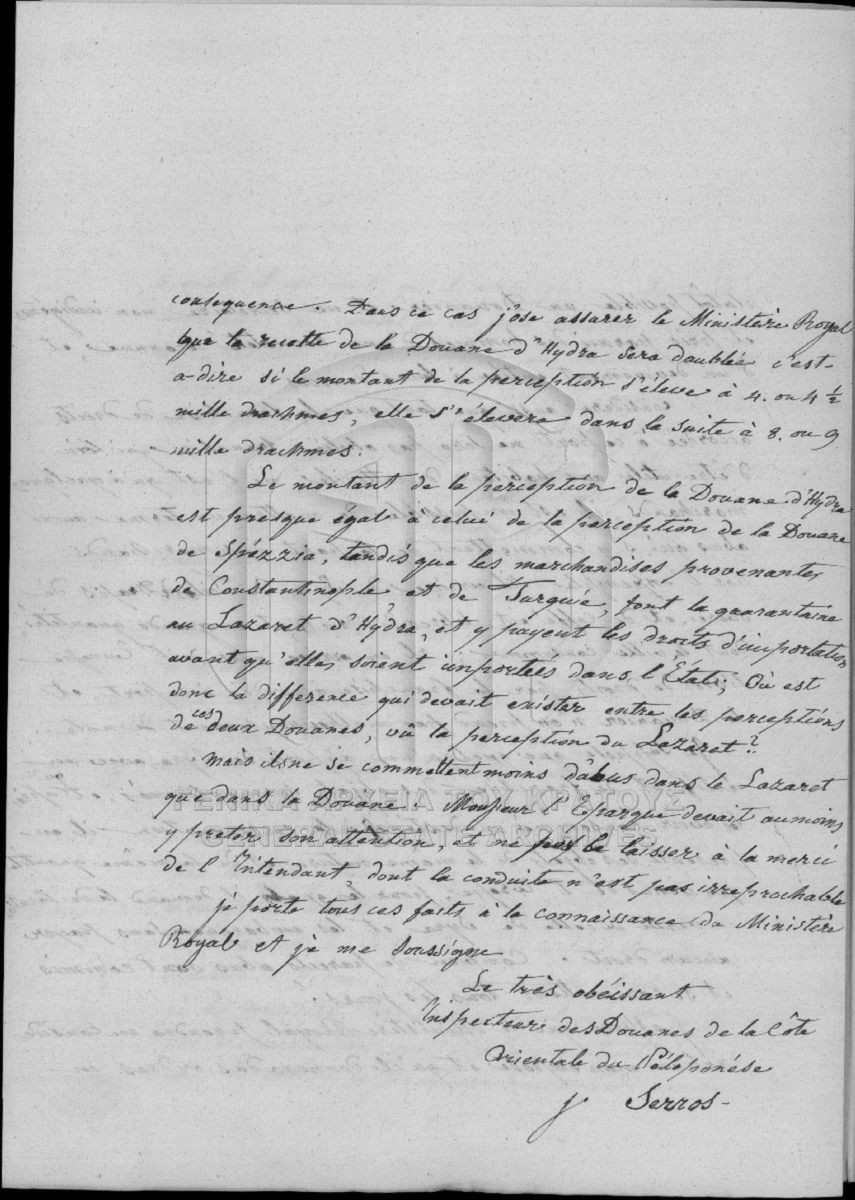 consequence. Dans ce cas j'ose assurer le Ministère Royal
que la recette de la Douane d'Hydra sera doublée c'est-
a-dire si le montant de la perception s'éleve à 4. ou 4 ½
mille drachmes, elle s'élevera dans la suite à 8. ou 9
mille drachmes.
Le montant de la perception de la Douane d'Hydra
est presque égal à celui de la perception de la Douane
de Spézzia, tandis que les marchandises provenantes
de Constantinople et de Turquie, font la quarantaine
au Lazaret d'Hydra, et y payent les droits d'importation
avant qu'elles soient importées dans l'Etat; Où est
donc la difference qui devait exister entre les perceptions
de ces deux Douanes, vû la perception du Lazaret?
Mais il se ne commettent moins d'abus dans le Lazaret
que dans la Douane. Monsieur l'Eparque devait au moins
y preter son attention, et ne pas le laisser à la merci
de l'Intendant, dont la conduite n'est pas irreprochable
je porte tous ces faits à la connaissance du Ministère
Royal et je me soussigne
Le très obéissant
Inspecteur des Douanes de la Côte
Orientale du Péloponése
J Serros-
ΓΕΝΙΚΑ ΑΡΧΕΙΑ ΤΟΥ ΚΡΑΤΟΥΣ
GENERAL STATE ARCHIVES